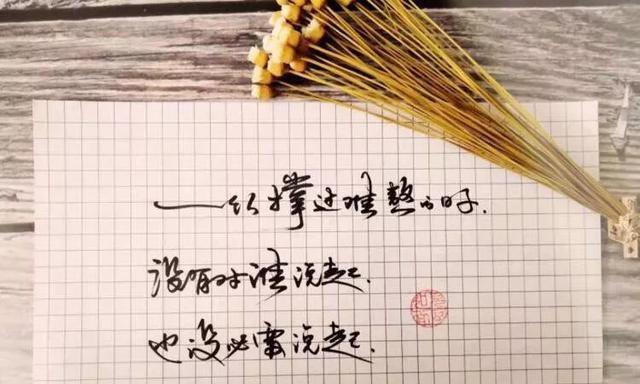 一撑过难熬的日子.
没有对谁说起.
也没必要说起.